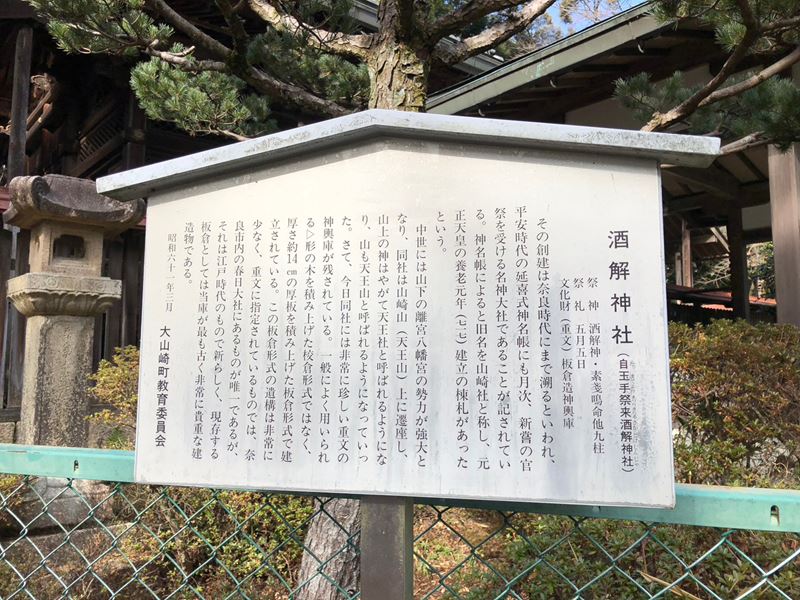 酒解神社(自玉手祭来酒解神社)
祭神 酒解神・素戔嗚命他九柱
祭礼 五月五日
文化財(重文)板倉造神輿庫
その創建は奈良時代にまで溯るといわれ、
平安時代の延喜式神名帳にも月次、新嘗の官
祭を受ける名神大社であることが記されてい
る。神名帳によると旧名を山崎社と称し、元
正天皇の養老元年(七一七)建立の棟札があった
という。
中世には山下の離宮八幡宮の勢力が強大と
なり、同社は山崎山(天王山)上に遷座し、
山上の神はやがて天王社と呼ばれるようにな
り、山も天王山と呼ばれるようになっていっ
た。さて、今日同社には非常に珍しい重文の
神輿庫が残されている。一般によく用いられ
る>形の木を積み上げた校倉形式ではなく、
厚さ約14㎝の厚板を積み上げた板倉形式で建
立されている。この板倉形式の遺構は非常に
少なく、重文に指定されているものでは、奈
良市内の春日大社にあるものが唯一であるが、
それは江戸時代のもので新らしく、現存する
板倉としては当庫が最も古く非常に貴重な建
造物である。
昭和六十一年三月
大山崎町教育委員会